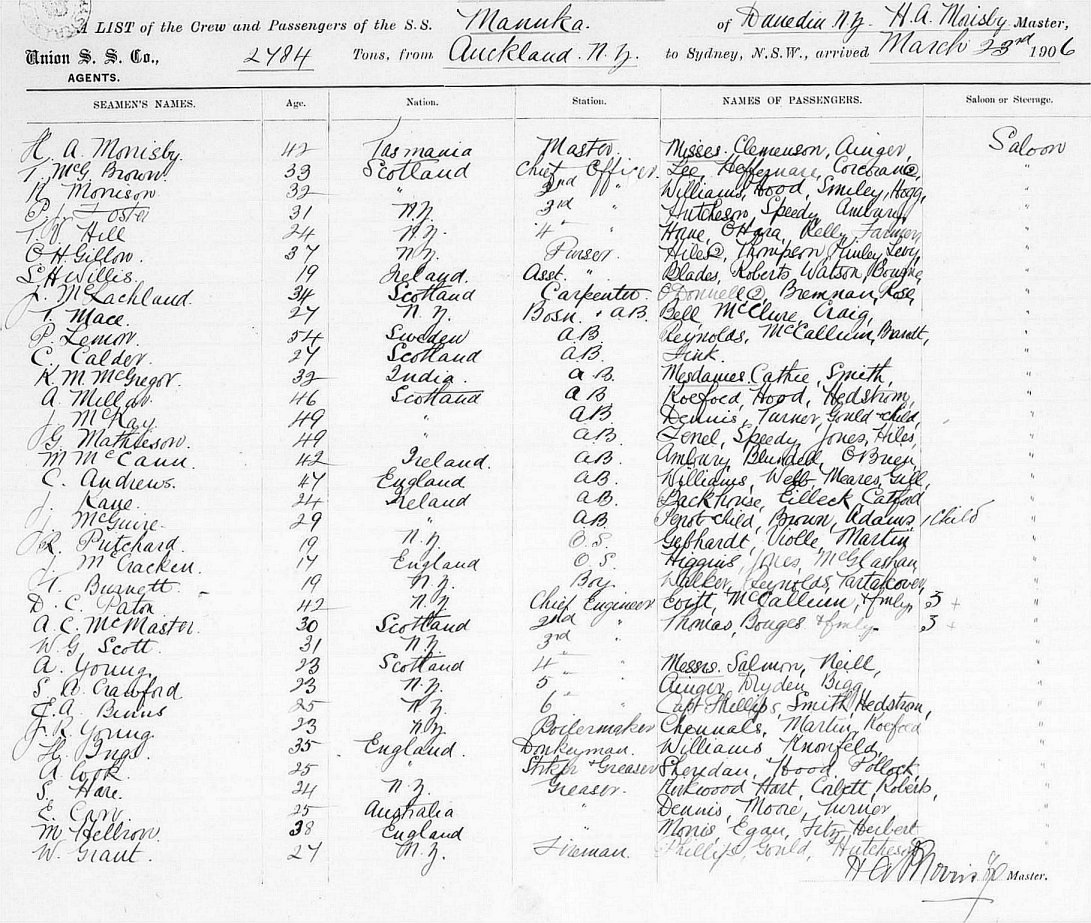 A LIST of the Crew and Passengers of the S.S. Manuka. of Dunedin N.Z. H. A. Morisby Master,
Union S. S. Co., 2484 Tons, from Auckland. N. Z. to Sydney, N.S.W., arrived March 23rd 1906
AGENTS.
SEAMEN'S NAMES. Age. Nation. Station. NAMES OF PASSENGERS. Saloon or Steerage.
H. A. Morrisby. 42 Tasmania Master. Misses. Clemenson, Ainger, Saloon
T. McG. Brown. 33 Scotland Chief Officer. Lee, Heffernan, Corcoran 2, "
Morrison 32 " 2nd " Williams, Hood, Smiley, Hogg, "
P. Foster 31 N.Z. 3rd " Hutcheson, Speedy, Ambury, "
Hill 24 N.Z. 4 " Hane, O'Hara, Kelly, "
O H. Gillow. 37 N.Z. Purser. Hiles 2, Thompson, Levy, "
S. H. Willis. 19 Ireland. Asst. ". Blades, Roberts, Watson, "
J. McLachland. 34 Scotland Carpenter. O'Donnell 2, Brennan, Rose, "
T. Mace. 27 N.Z. Bosn. + A.B. Bell, McClure, Craig, "
P. Lemon. 54 Sweden A.B. Reynolds, McCallum, Brandt, "
C. Calder. 27 Scotland A.B. Fink. "
K. M. McGregor. 32 India. A B. Mesdames. Cathie, Smith, "
A. Millar. 46 Scotland A B. Koefoed, Hood, Hedstrom, "
J. McKay. 49 " A B. Dennis, Turner, Gould + child, "
G. Mathieson. 49 " A B. Speedy, Jones, Hiles, "
M McCann. 42 Ireland. A B. Ambury, Blundell, O'Brien, "
C. Andrews. 47 England A B. Williams, Webb, Meares, Gill, "
J. Kane. 24 Ireland A B. Backhouse, Catford "
J. McGuire. 29 " A B. + child, Brown, Adams, 1 child "
R. Pritchard. 19 N.Z. O. S. Gebhardt, Violle, Martin "
J. McCracken. 17 England O. S. Higgins, Jones, McGlashan, "
T. Burnett. 19 N.Z. Boy. Walker, Reynolds, Tartakover, "
D. C. Paton 42 N.Z. Chief Engineer McCallum, + fmly, 3 "
A. C. McMaster. 30 Scotland 2nd " Thomas, Bouges + fmly 3 "
W. G. Scott. 31 N.Z. 3rd " "
A. Young. 23 Scotland 4 " Messrs. Salmon, Neill, "
S. A. Crawford. 23 N.Z. 5 " Ainger, Dryden, Bigg, "
E. A. Binns 25 N.Z. 6 " Capt Phillips, Smith, Hedstrom, "
J. R. Young. 23 N.Z. Boilermaker Chennals, Martin, Koefoed "
H. Inge. 35 England. Donkeyman. Williams, Kronfeld, "
A. Cook. 25 " Stkpr + Greaser Sheridan, Hood, Pollock, "
S. Hare. 24 N.Z. Greaser. Kirkwood, Hart, Corbett, Roberts, "
E. 25 Australia " Dennis, Moore, Turner "
M. Hellion. 38 England " Morris, Egan, Fitz Herbert "
W. Grant. 27 N.Z. Fireman. Phillips, Gould, Hutcheson "
H A Morrisby Master.